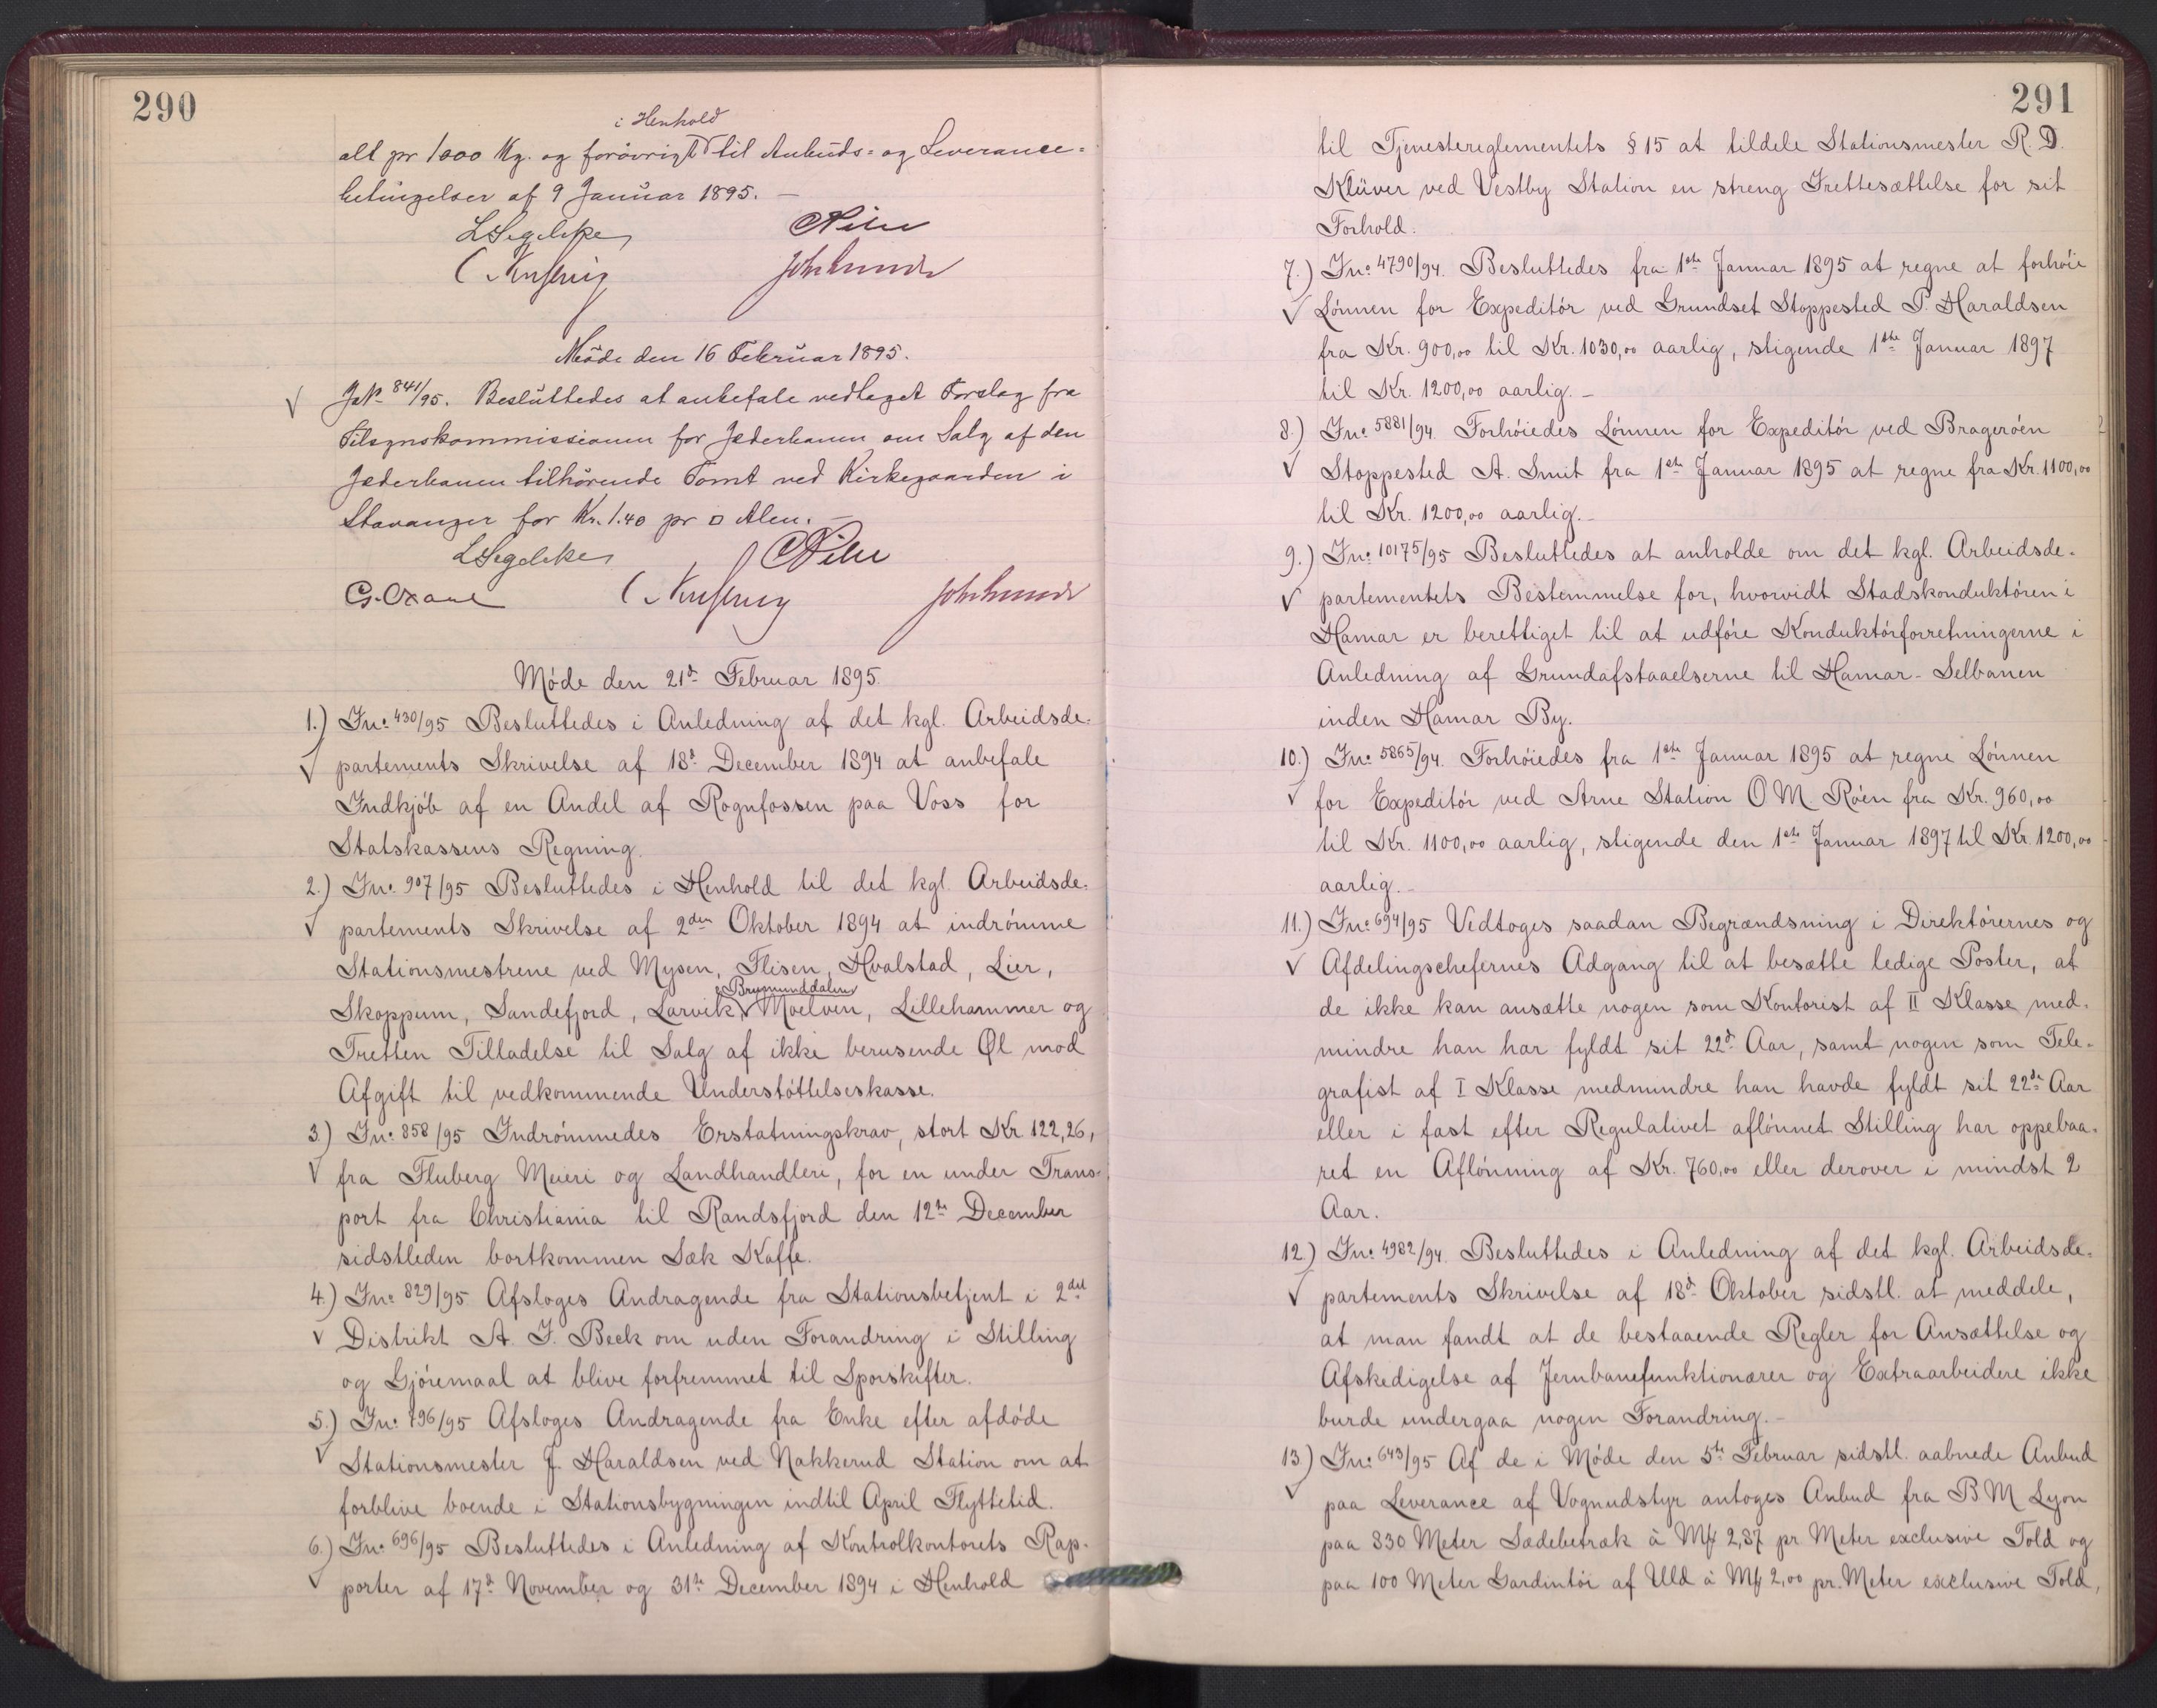 290
i Henhold
alt pr 1000 Kg. og forövrigt til Anbuds- og Leverance-
betingelser af 9 Januar 1895. —
LSegelcke
Møde den 16 Februar 1895.
√ JNo 841/95. Besluttedes at anbefale vedlaget Forslag fra
Tilsynskommissionen for Jæderbanen om Salg af den
Jæderbanen tilhörende Tomt ved Kirkegaarden i
Stavanger for Kr. 1.40 pr □ Alen. —
LSegelcke
Møde den 21de Februar 1895.
1.) Jnº 430/95 Besluttedes i Anledning af det kgl. Arbeidsde-
√ partements Skrivelse af 18de December 1894 at anbefale
Indkjøb af en Andel af Rognfossen paa Voss for
Statskassens Regning.
2.) Jnº 907/95 Besluttedes i Henhold til det kgl. Arbeidsde-
√ partements Skrivelse af 2den Oktober 1894 at indrømme
Stationsmestrene ved Mysen, Flisen, Hvalstad, Lier,
Brynunddalen
Skoppum, Sandefjord, Larvik, Moelven, Lillehammer og
Tretten Tilladelse til Salg af ikke berusende Øl mod
Afgift til vedkommende Understøttelseskasse.
3.) Jnº 858/95 Indrømmedes Erstatningskrav, stort Kr 122,26,
√ fra Fluberg Meieri og Landhandleri, for en under Trans-
port fra Christiania til Randsfjord den 12te December
sidstleden bortkommen Sæk Kaffe.
4.) Jnº 829/95 Afsloges Andragende fra Stationsbetjent i 2det
√ Distrikt A. J. Beck om uden Forandring i Stilling
og Gjøremaal at blive forfremmet til Sporskifter.
5.) Jnº 796/95 Afsloges Andragende fra Enke efter afdøde
√ Stationsmester J. Haraldsen ved Nakkerud Station om at
forblive boende i Stationsbygningen indtil April Flyttetid.
6.) Jnº 696/95 Besluttedes i Anledning af Kontrolkontorets Rap-
√ porter af 17de November og 31te December 1894 i Henhold
291
til Tjenestereglementets § 15 at tildele Stationsmester R. D.
Klüver ved Vestby Station en streng Irettesættelse for sit
Forhold.
7.) Jnº 4790/94. Besluttedes fra 1ste Januar 1895 at regne at forhøie
√ Lønnen for Expeditør ved Grundset Stoppested P. Haraldsen
fra Kr. 900,00 til Kr. 1030,00 aarlig, stigende 1ste Januar 1897
til Kr. 1200,00 aarlig. —
8.) Jnº 5881/94. Forhøiedes Lønnen for Expeditør ved Bragerøen
√ Stoppested A. Smit fra 1ste Januar 1895 at regne fra Kr. 1100,00
til Kr. 1200,00 aarlig. —
9.) Jnº 10175/95 Besluttedes at anholde om det kgl. Arbeidsde-
√ partementets Bestemmelse for, hvorvidt Stadskonduktøren i
Hamar er berettiget til at udføre Konduktørforretningerne i
Anledning af Grundafstaaelserne til Hamar-Selbanen
inden Hamar By.
10.) Jnº 5865/94. Forhøiedes fra 1ste Januar 1895 at regne Lønnen
√ for Expeditør ved Arne Station O M Røen fra Kr. 960,00
til Kr. 1100,00 aarlig, stigende den 1ste Januar 1897 til Kr. 1200,00
aarlig. —
11.) Jnº 694/95 Vedtoges saadan Begrændsning i Direktørernes og
√ Afdelingschefernes Adgang til at besætte ledige Poster, at
de ikke kan ansætte nogen som Kontorist af II Klasse med-
mindre han har fyldt sit 22de Aar, samt nogen som Tele-
grafist af I Klasse medmindre han havde fyldt sit 22de Aar
eller i fast efter Regulativet aflønnet Stilling har oppebaa-
ret en Aflønning af Kr. 760,00 eller derover i mindst 2
Aar.
12.) Jnº 4982/94. Besluttedes i Anledning af det kgl. Arbeidsde-
√ partements Skrivelse af 18de Oktober sidstl. at meddele,
at man fandt at de bestaaende Regler for Ansættelse og
Afskedigelse af Jernbanefunktionærer og Extraarbeidere ikke
burde undergaa nogen Forandring. —
13.) Jnº 643/95 Af de i Møde den 5te Februar sidstl. aabnede Anbud
√ paa Leverance af Vognudstyr antoges Anbud fra B M Lyon
paa 330 Meter Sædebetræk à Mk 2,37 pr Meter exclusive Told og
paa 100 Meter Gardintøi af Uld à Mk 2,00 pr. Meter exclusive Told,